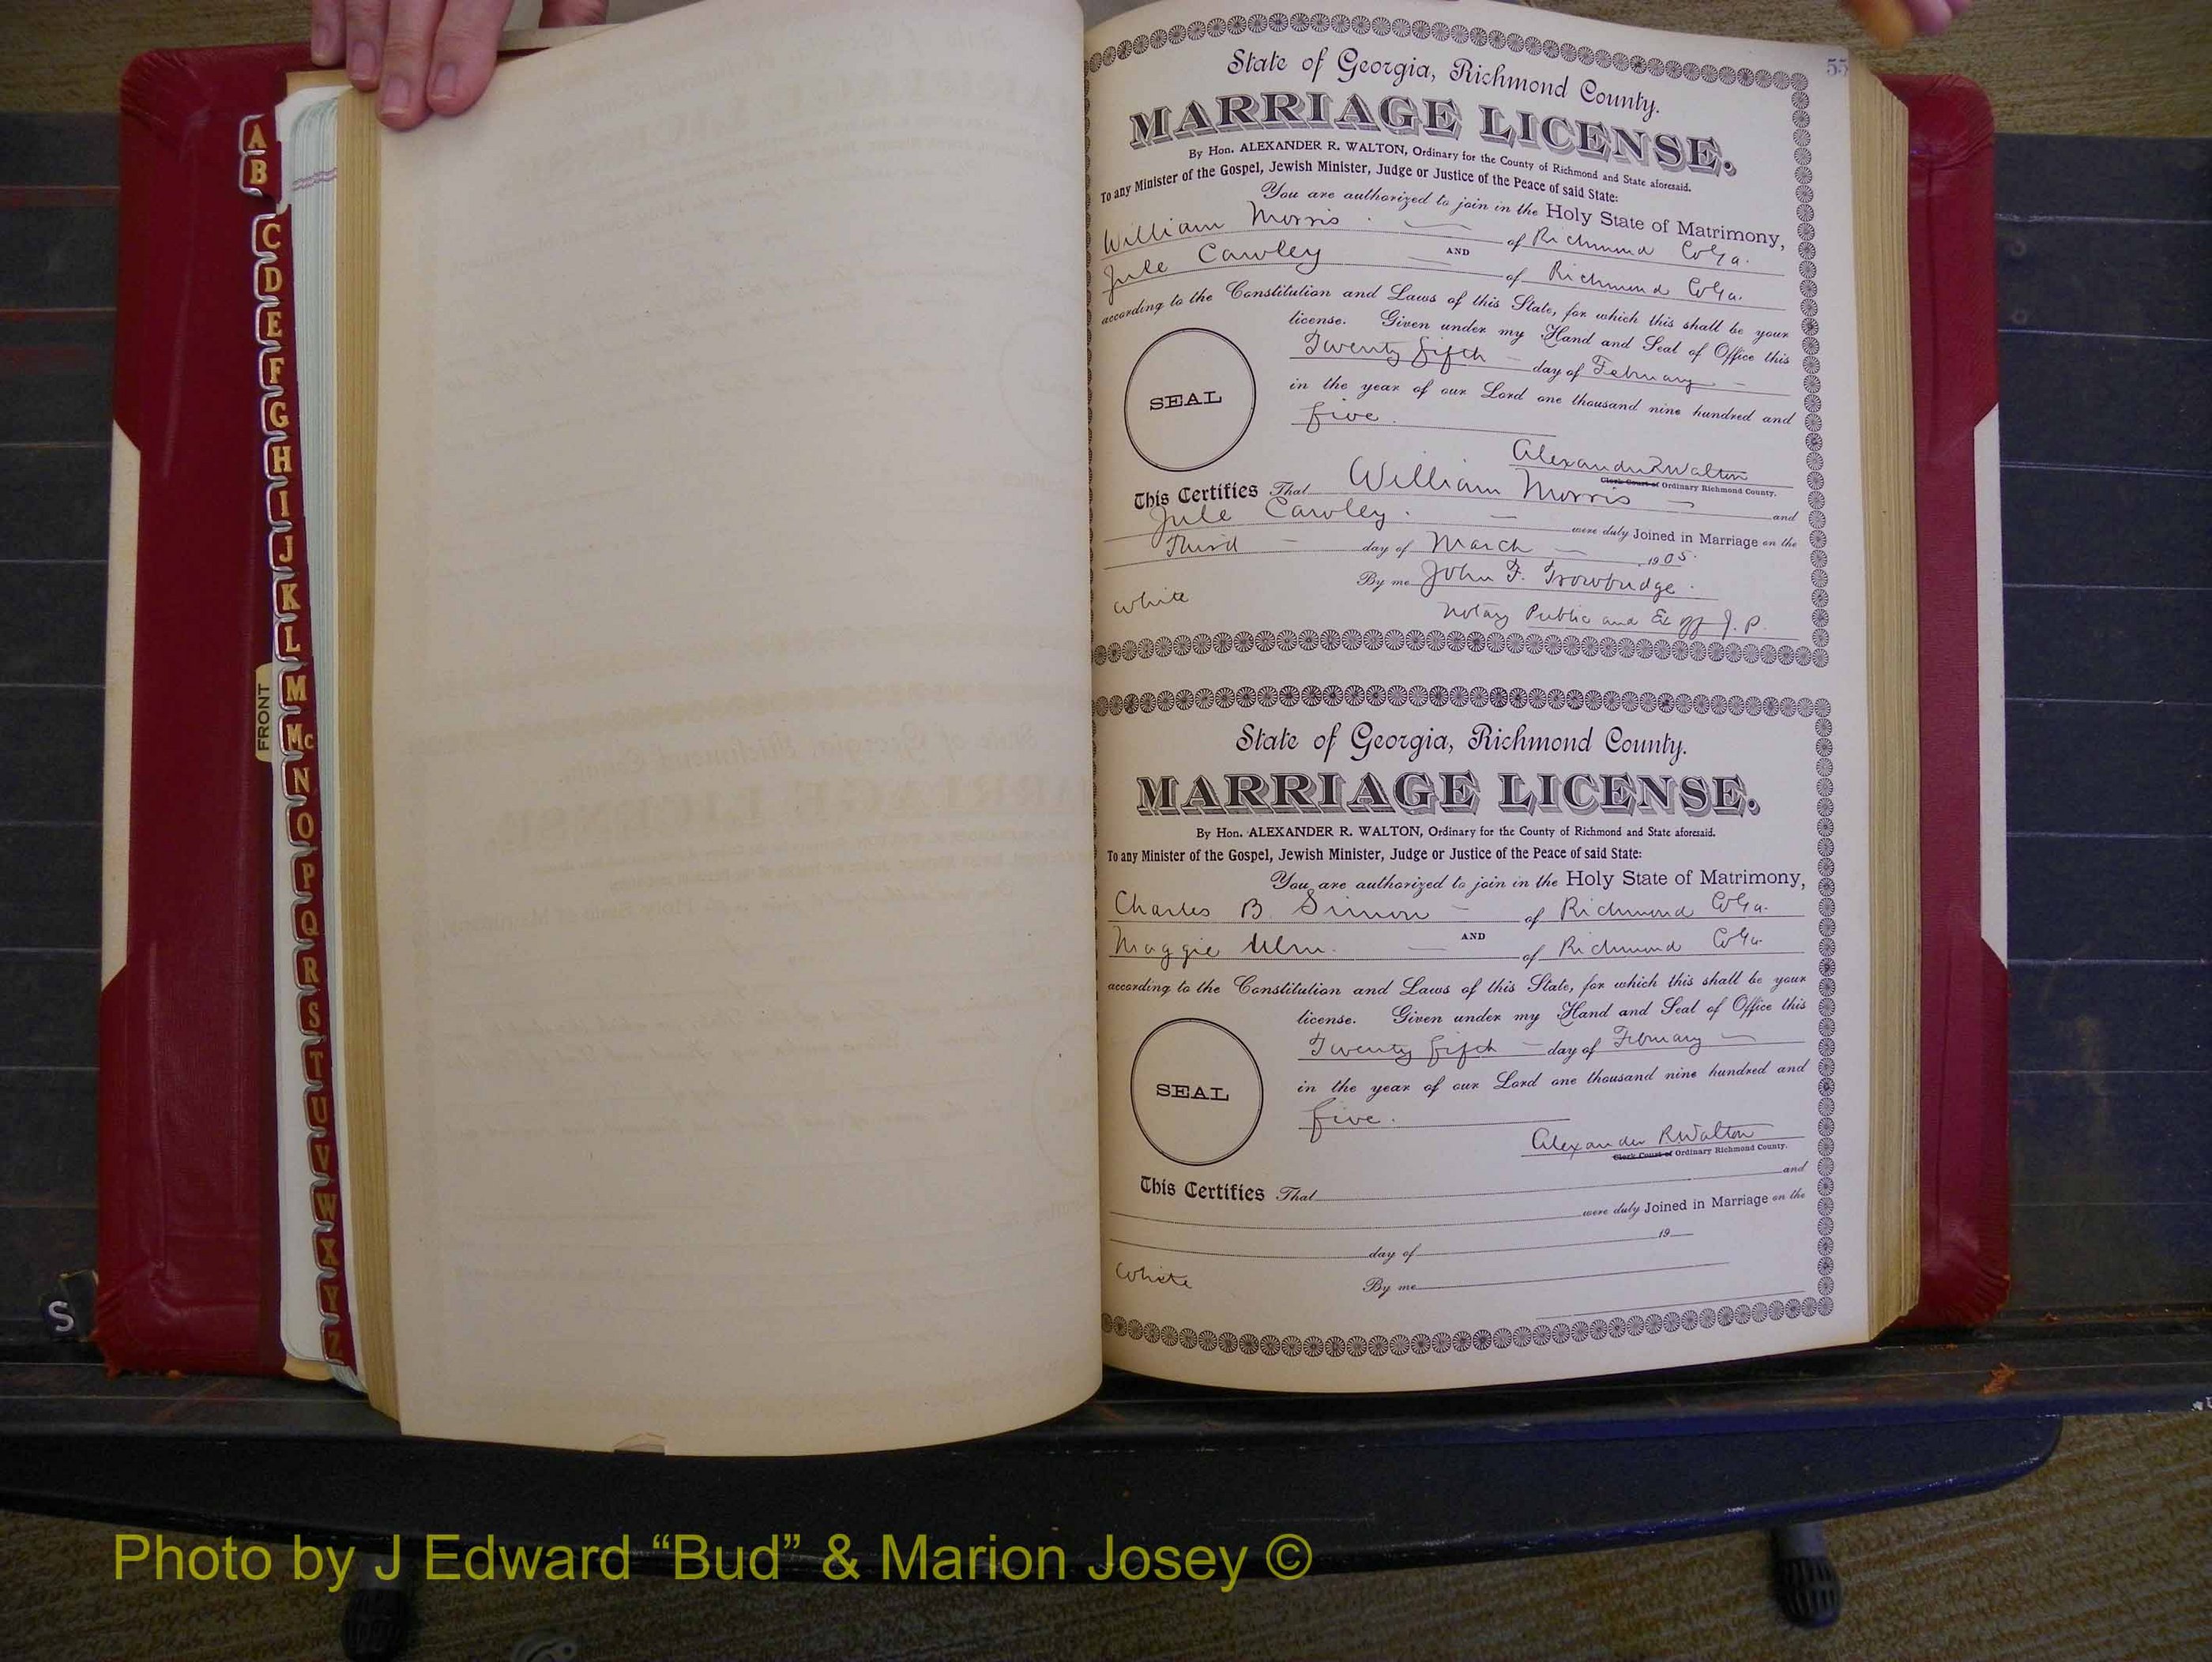 A
B
C
D
E
F
G
H
I
J
K
L
M
Mc
N
O
P
Q
R
S
T
U
V
W
X
Y
Z
FRONT
S
55
State of Georgia, Richmond County.
MARRIAGE LICENSE.
By Hon. ALEXANDER R. WALTON, Ordinary for the County of Richmond and State aforesaid.
To any Minister of the Gospel, Jewish Minister, Judge or Justice of the Peace of said State:
You are authorized to join in the Holy State of Matrimony,
William Morris of Richmond Co Ga.
AND
Jule Cawley of Richmond Co Ga.
according to the Constitution and Laws of this State, for which this shall be your
license. Given under my Hand and Seal of Office this
Twenty fifth day of February
in the year of our Lord one thousand nine hundred and
five.
SEAL
Alexander R Walton
Clerk Court of Ordinary Richmond County.
This Certifies That William Morris and
Jule Cawley. were duly Joined in Marriage on the
Third day of March 1905.
By me John F. Trowbridge.
White
Notary Public and Ex off J. P.
State of Georgia, Richmond County.
MARRIAGE LICENSE.
By Hon. ALEXANDER R. WALTON, Ordinary for the County of Richmond and State aforesaid.
To any Minister of the Gospel, Jewish Minister, Judge or Justice of the Peace of said State:
You are authorized to join in the Holy State of Matrimony,
Charles B. Simon of Richmond Co Ga.
AND
Maggie Ulm. of Richmond Co Ga.
according to the Constitution and Laws of this State, for which this shall be your
license. Given under my Hand and Seal of Office this
Twenty fifth day of February
in the year of our Lord one thousand nine hundred and
five.
SEAL
Alexander R Walton
Clerk Court of Ordinary Richmond County.
This Certifies That and
were duly Joined in Marriage on the
day of 19
White
By me
Photo by J Edward “Bud” & Marion Josey ©